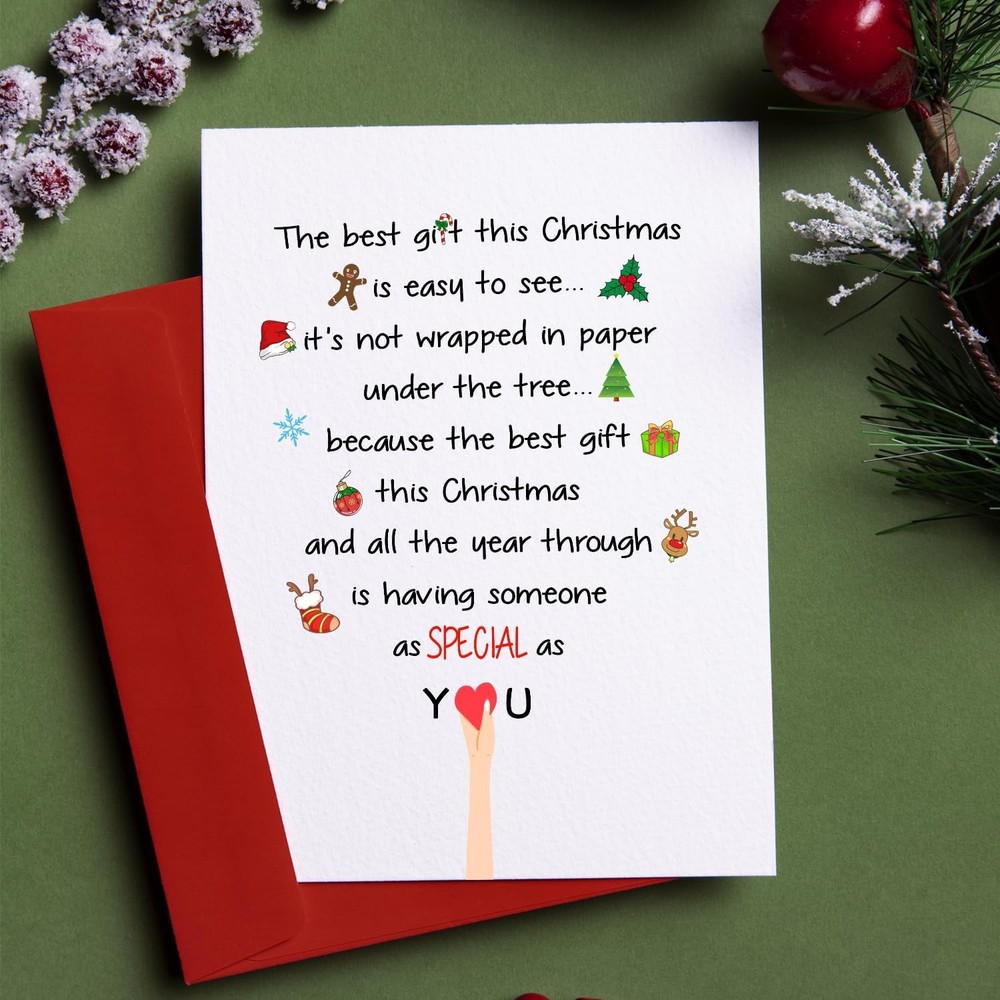 The best gift this Christmas
is easy to see...
it's not wrapped in paper
under the tree...
because the best gift
this Christmas
and all the year through
is having someone
as SPECIAL as
Y❤U